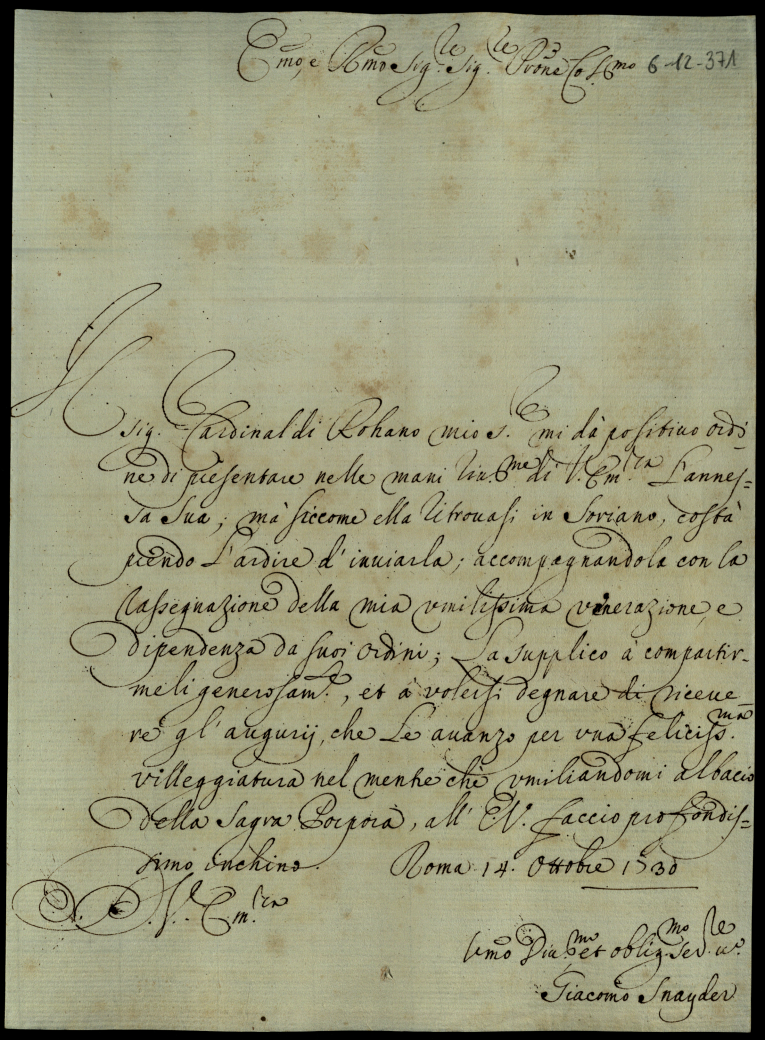 E.mo, e R.mo Sig.re Sig.re P.rone Col.mo 6-12-371
Il
sig.r Cardinal di Rohano mio s.re mi dà positivo ordi-
ne di presentare nelle mani riu.me di V. Em.za l'annes-
sa sua; mà siccome ella ritrovasi in Soriano, costà
prendo l'ardire d'inviarla; accompagnandola con la
rassegnazione della mia vmilissima venerazione, e
dipendenza da suoi ordini; La supplico à compartir-
meli generosam.te, et à volersi degnare di riceve-
re gl'augurij, che Le avanzo per vna feliciss.ma
villeggiatura nel mentre chè vmiliandomi al bacio
della Sagra Porpora, all' E.V. faccio profondis-
simo inchino. Roma 14. Ottobre 1730
D. V. Em.za
Vmo Diu.mo et oblig.mo Ser.re u.o
Giacomo Snayder